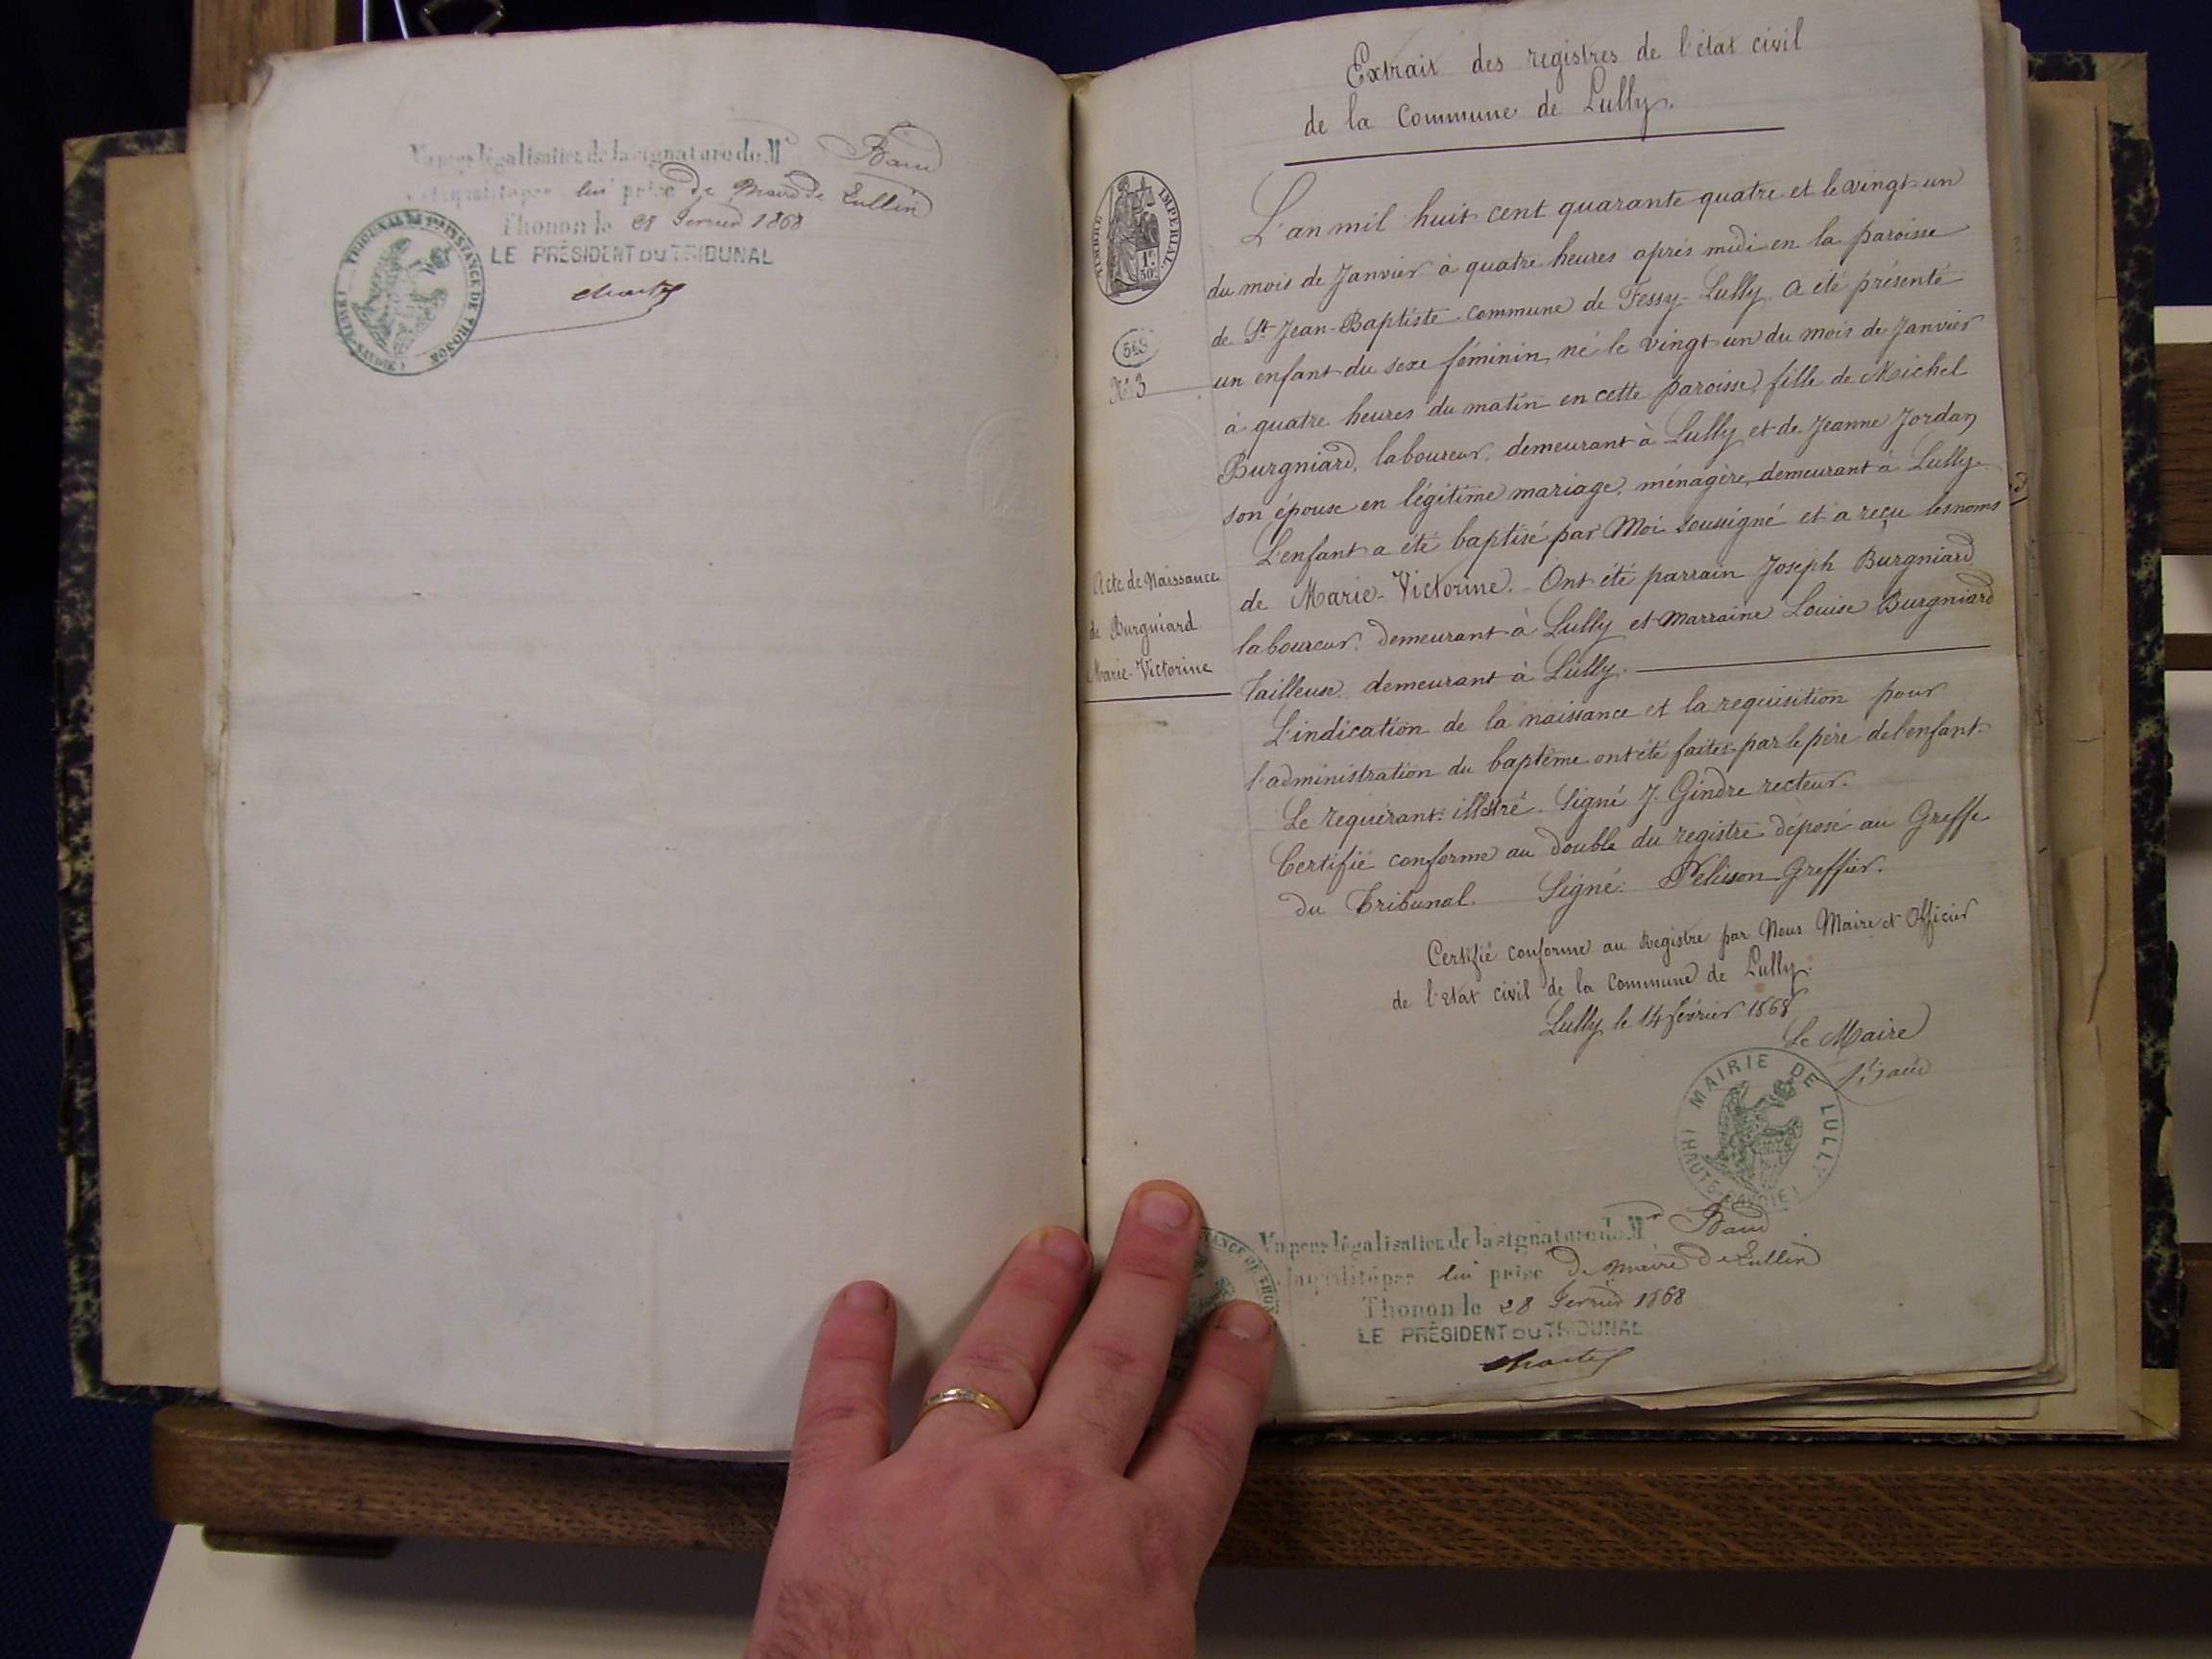 Vu pour légalisation de la signature de Mr Baud
lui prise de Maire de Lullin
Thonon le 28 Février 1868
LE PRÉSIDENT DU TRIBUNAL
TRIBUNAL DE 1re INSTANCE DE THONON
(HAUTE-SAVOIE)
Extrait des registres de l'état civil
de la Commune de Lully.
TIMBRE IMPERIAL
1f.
50c.
N° 3
Acte de Naissance
de Burgniard
Marie-Victorine
L'an mil huit cent quarante quatre et le vingt-un
du mois de Janvier à quatre heures après midi en la paroisse
de St Jean-Baptiste commune de Fessy-Lully, a été présenté
un enfant du sexe féminin, né le vingt-un du mois de Janvier
à quatre heures du matin en cette paroisse, fille de Michel
Burgniard, laboureur, demeurant à Lully et de Jeanne Jordan
son épouse en légitime mariage, ménagère, demeurant à Lully.
L'enfant a été baptisé par Moi soussigné et a reçu les noms
de Marie-Victorine. Ont été parrain Joseph Burgniard
laboureur, demeurant à Lully et marraine Louise Burgniard
Tailleuse, demeurant à Lully.
L'indication de la naissance et la requisition pour
l'administration du baptême ont été faites par le père de l'enfant.
Le requérant: illetré. Signé J. Gindre recteur.
Certifié conforme au double du registre déposé au Greffe
du Tribunal. Signé: Pelisson Greffier.
Certifié conforme au Registre par Nous Maire et Officier
de l'Etat civil de la Commune de Lully.
Lully le 14 février 1868
Le Maire
Baud
MAIRIE DE LULLY
(HAUTE-SAVOIE)
Vu pour légalisation de la signature de Mr Baud
la qualité par lui prise de maire de Lullin
Thonon le 28 Février 1868
LE PRÉSIDENT DU TRIBUNAL